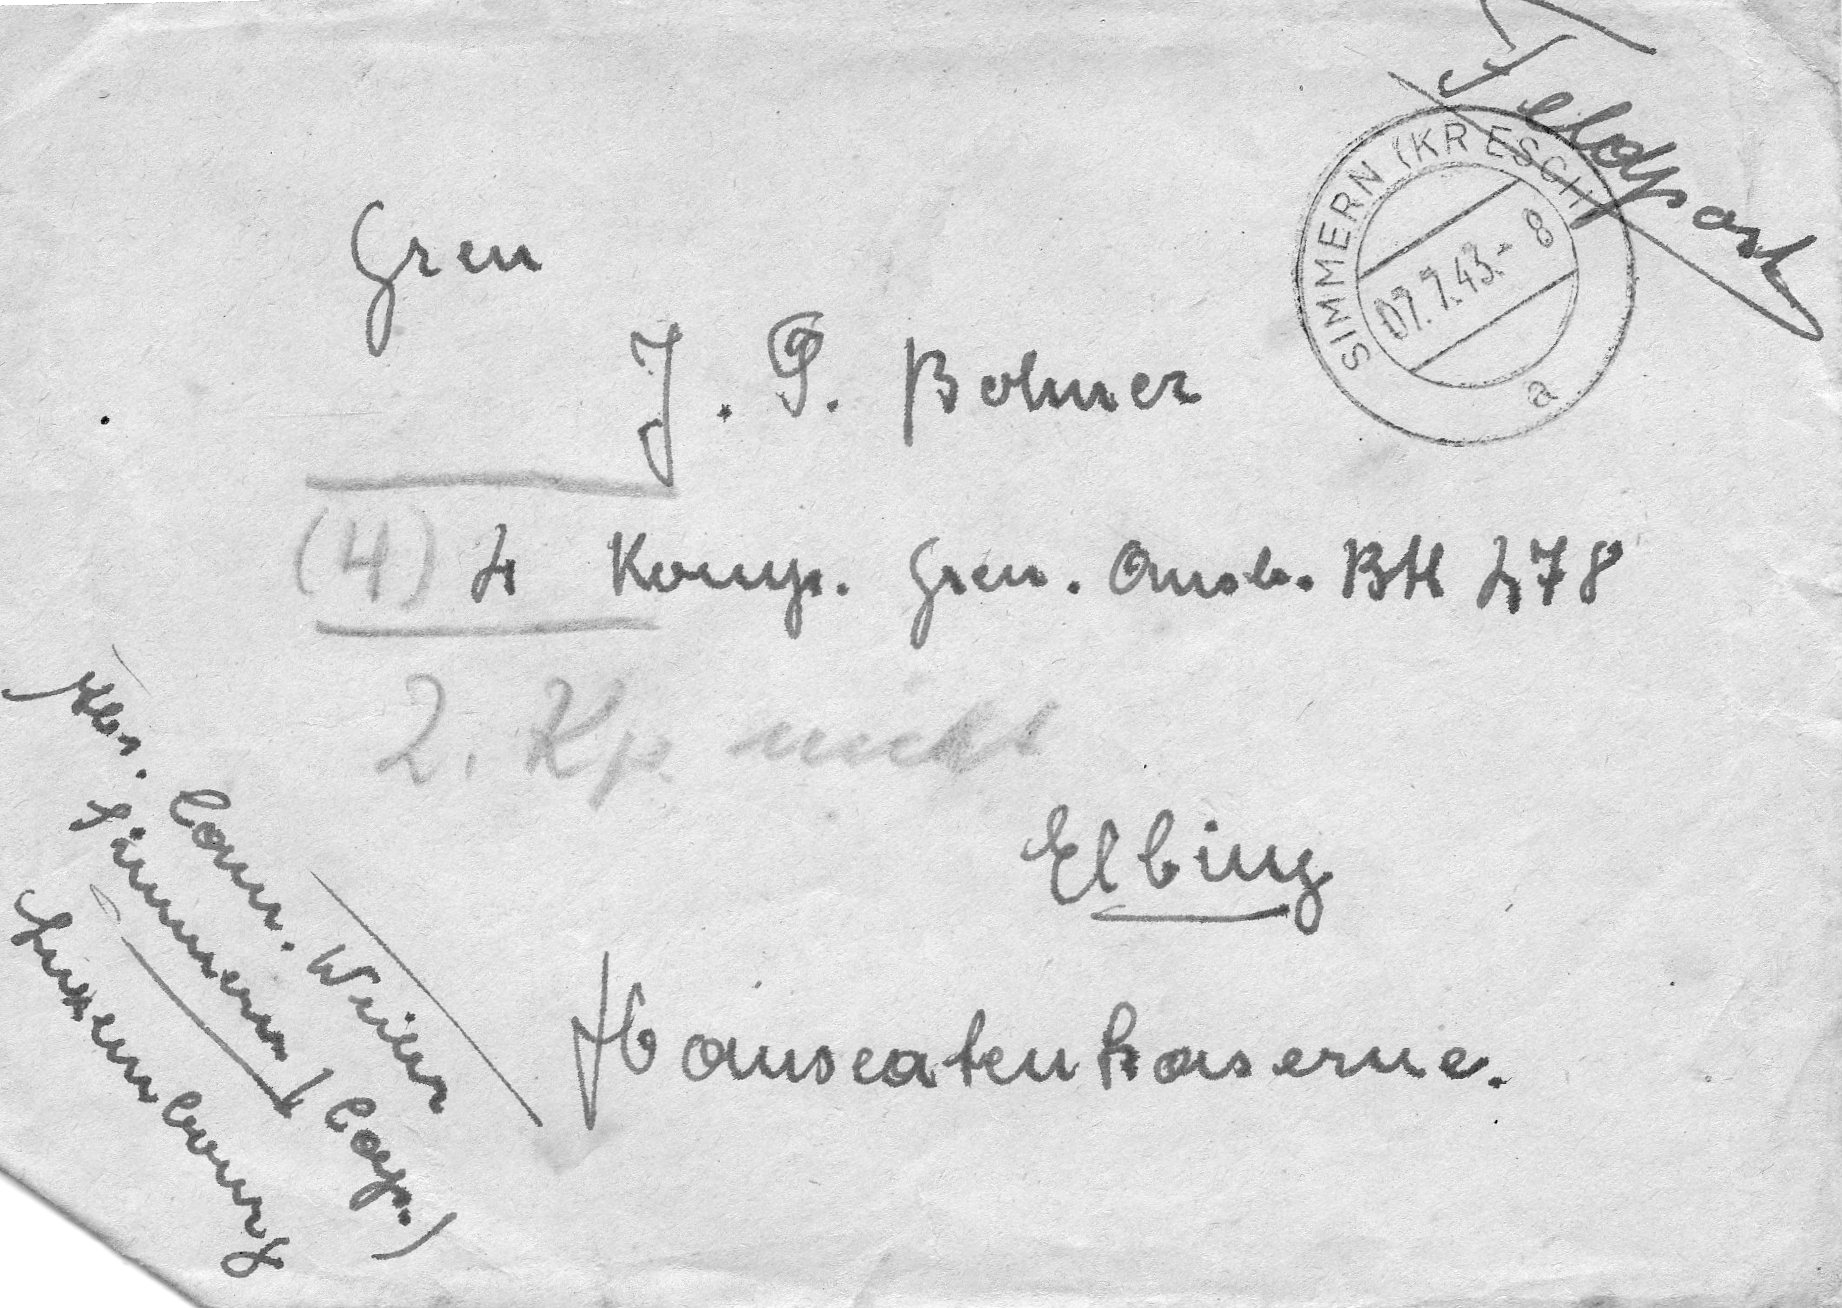 Feldpost
SIMMERN (KR ESCH)
07.7.43.- 8
a
Gren
J. P. Bohner
(4) 4 Komp. Gren. Ausb. Btl 478
2. Kp. nicht
Elbing
Hanseatenkaserne.
Abs. Cam. Weiler
Simmern (Cap.)
Luxemburg